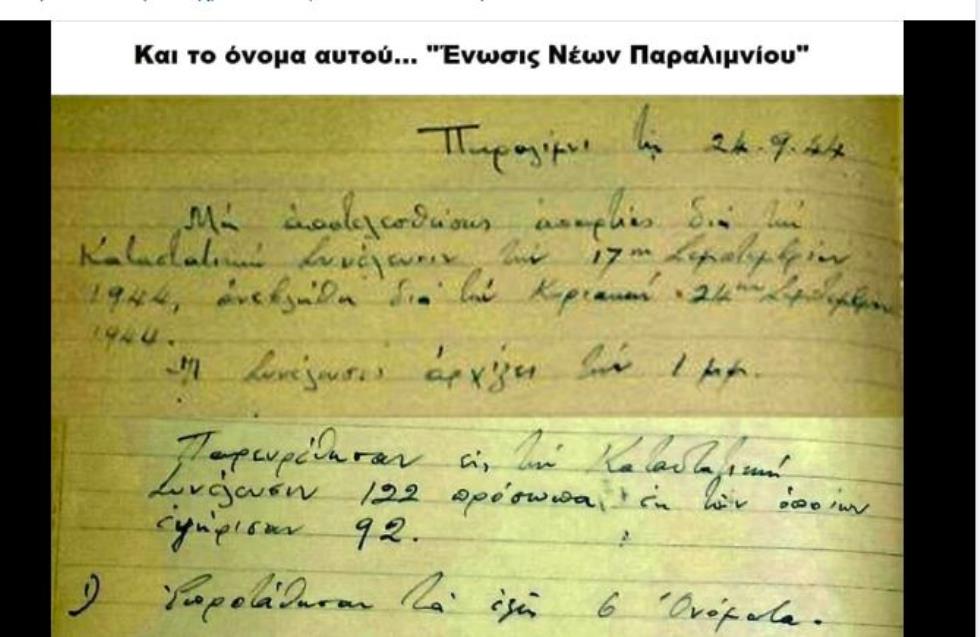 Και το όνομα αυτού... "Ένωσις Νέων Παραλιμνίου"
Παραλίμνι τῇ 24.9.44
Μὴ ἀποτελεσθείσης ἀπαρτίας διὰ τὴν
Καταστατικὴν Συνέλευσιν τὴν 17ην Σεπτεμβρίου
1944, ἀνεβλήθη διὰ τὴν Κυριακὴν 24ην Σεπτεμβρίου
1944.
Ἡ Συνέλευσις ἀρχίζει τὴν 1 μμ.
Παρευρέθησαν εἰς τὴν Καταστατικὴν
Συνέλευσιν 122 πρόσωπα, ἐκ τῶν ὁποίων
ἐψήφισαν 92.
1) Ἐπροτάθησαν τὰ ἑξῆς 6 Ὀνόματα.